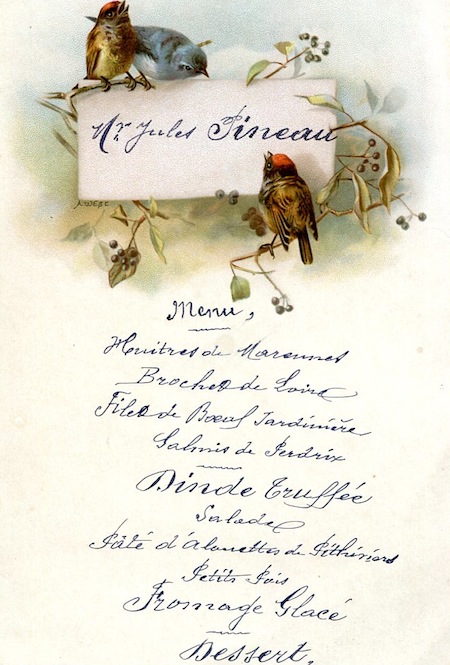 Mr. Jules Pineau
Menu,
Huitres de Marennes
Brochet de Loire
Filet de Bœuf Jardinière
Salmis de Perdrix
Dinde Truffée
Salade
Pâté d'Alouettes de Pithiviers
Petits Pois
Fromage Glacé
Dessert.